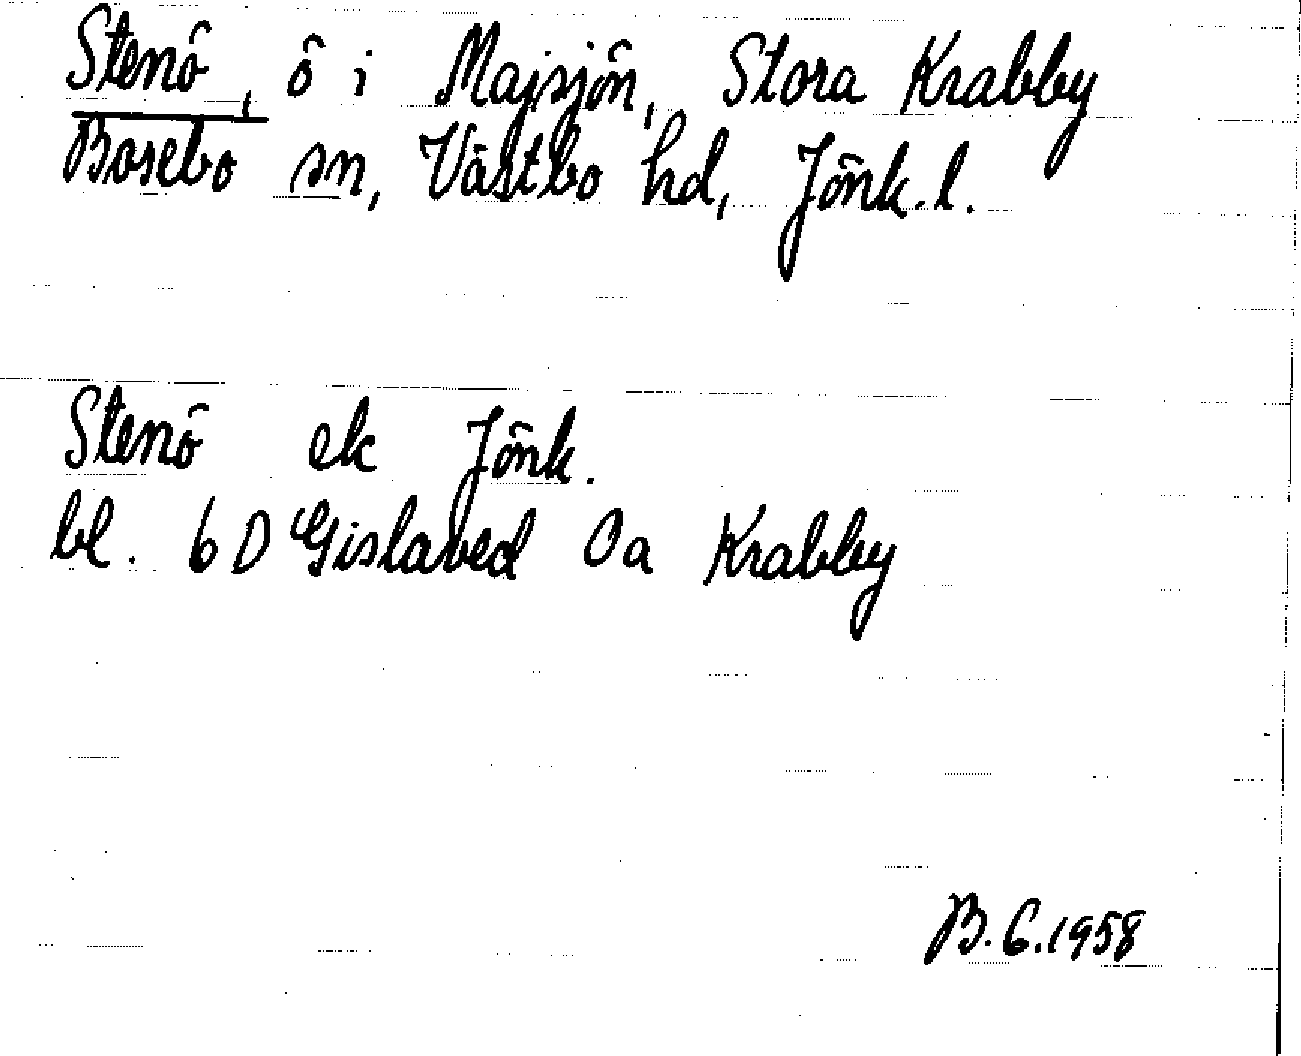 Stenö, ö i Majsjön, Stora Krabby
Bosebo sn, Västbo hd, Jönk. l.
Stenö ek Jönk.
bl. 6D Gislaved 0a Krabby
B. G. 1958